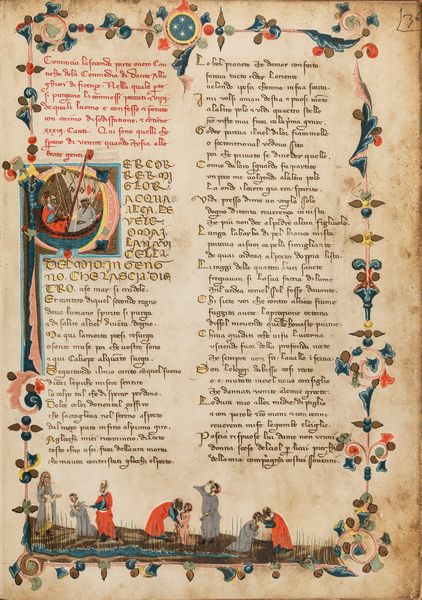 Comincia la seconda parte overo Can
tica dela Commedia di Dante Ala
ghieri di firençe. Nella quale par
si purgano li commessi peccati et vitii
de quali luomo e confesso et pentuto
con animo di sodisfatione. et contiene
XXXIII. Canti. Qui sono quelli che
sperano di venire quando che sia alle
beate genti.
PER COR
RER MI
GLOR
ACQUA
ALÇA LE
VELE
OMAI
LA NAVI
CELLA
DEL MIO INGENG
NO. CHE LASCIA DIE
TRO. ase mar si crudele.
Et cantero di quel secondo regno
dovo lumano spirito si purga
et di salire al ciel diventa degno.
Ma qui la morta poesi resurga
o sante muse poi che vostro sono
et qui Caliope alquanto surga.
Seguitando il mio canto co quel suono
di cui le piche misere sentire
lo colpo tal che disperar perdono.
Dolce color doriental çaffiro
che saccoglieva nel sereno aspecto
dal meço puro infino al primo giro.
Agliocchi miei ricomincio dilecto
tosto chio usci fuor dellaura morta
che mavea contristati gliocchi el pecto.
Lo bel pianeto che damar conforta
faceva tucto rider loriente
velando i pesci cherano in sua scorta.
Imi volsi aman destra et puosi mente
alaltro polo et vidi quattro stelle
non viste mai fuor cala prima gente.
Goder pareva il ciel di lor fiammelle
o septentrional vedovo sito
poi che privato se di veder quelle.
Comio dal loro sguardo fui partito
un poco me volgendo alaltro polo
la onde il carro gia era sparito.
Vidi presso di me un veglio solo
degno di tanta reverença in vista
che piu non dee al padre alcun figliuolo.
Lunga la barba et di pel bianco mista
portava a suoi capelli simigliante
de quai cadeva al pecto doppia lista.
Li raggi delle quattro luci sancte
fregiavan si la sua faccia di lume
chil vedea comel sol fosse davante.
Chi siete voi che contro al cieco fiume
fuggita avete la pregione etterna
dissel movendo quelle honeste piume.
Chi va guidati o chi vi fu lucerna
uscendo fuor della profonda nocte
che sempre nera fa la valle inferna.
Son le leggi dabisso cosi rocte
o e mutato in ciel nuovo consiglio
che dannati venite ale mie grocte.
Lo duca mio allor mi die di piglio
et con parole et con mani et con cenni
reverenti mi fe le gambe el ciglio.
Poscia rispuose lui da me non venni
donna scese del ciel per li cui prieghi
della mia compagnia costui sovenni.